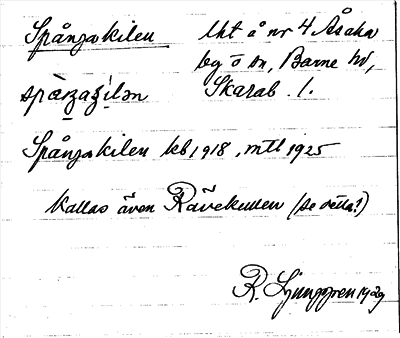 Spångakilen lht å nr 4 Åsaka
by ö sn, Barne hd,
Skarab. l.
Spångakilen kb 1918, mtl 1925
Kallas även Rävekullen (se detta!)
R. Ljunggren 1929